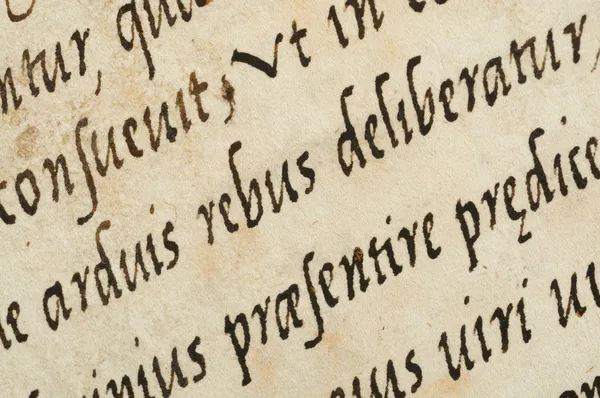 ntur, qu
conſueuit, Vt in
arduis rebus deliberatur,
præſentire prędice
uiri